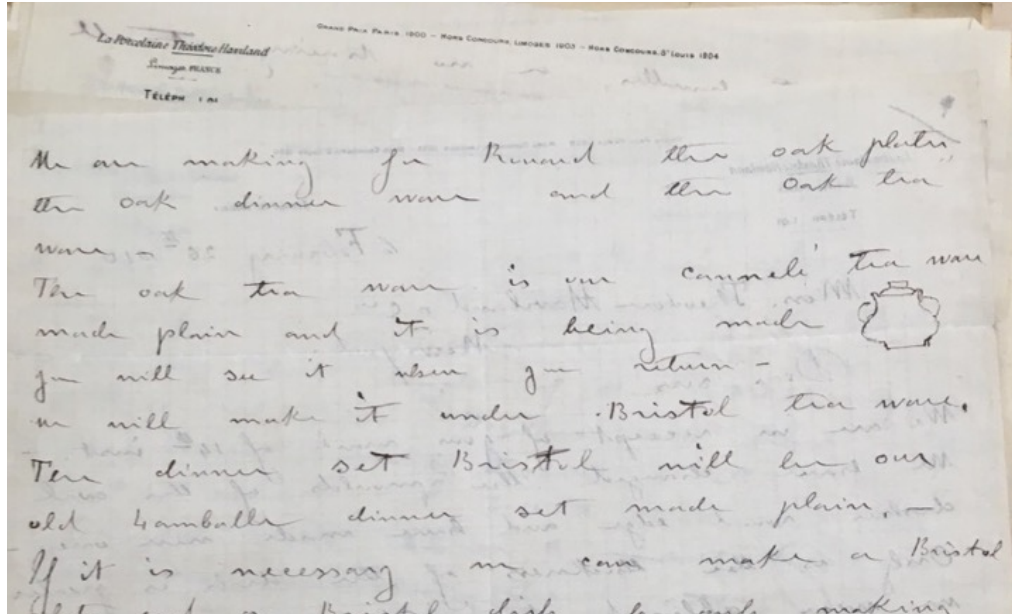 La Porcelaine Théodore Haviland
Limoges, FRANCE
TÉLÉPH 1.01
GRAND PRIX PARIS 1900 – HORS CONCOURS, LIMOGES 1903 – HORS CONCOURS, St LOUIS 1904
We are making for Renard the oak plates,
the oak dinner ware and the oak tea
ware
The oak tea ware is our cannelé tea ware
made plain and it is being made
you will see it when you return –
we will make it under Bristol tea ware.
The dinner set Bristol will be our
old Lamballe dinner set made plain. –
If it is necessary we can make a Bristol
a Bristol dish making